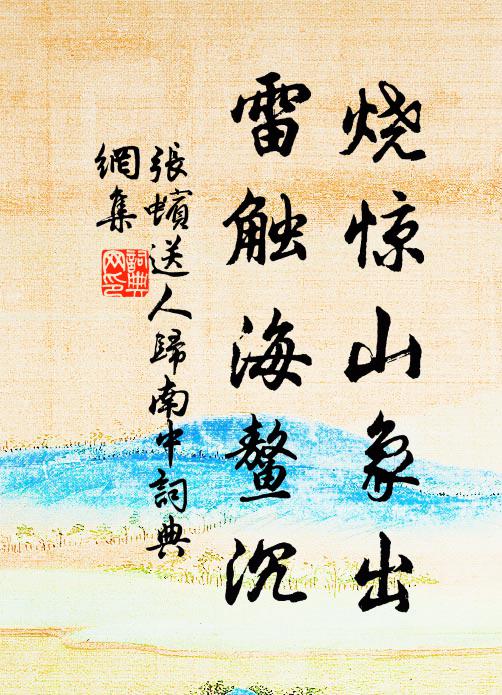 烧惊山象出
雷触海鳌沉
張蠙送人歸南中詞典
網集
詞典
网印